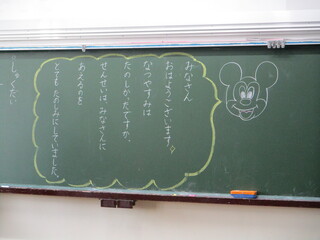 みなさん
おはようございます。
なつやすみは
たのしかったですか。
せんせいは、みなさんに
あえるのを
とてもたのしみにしていました。
しゅくだい